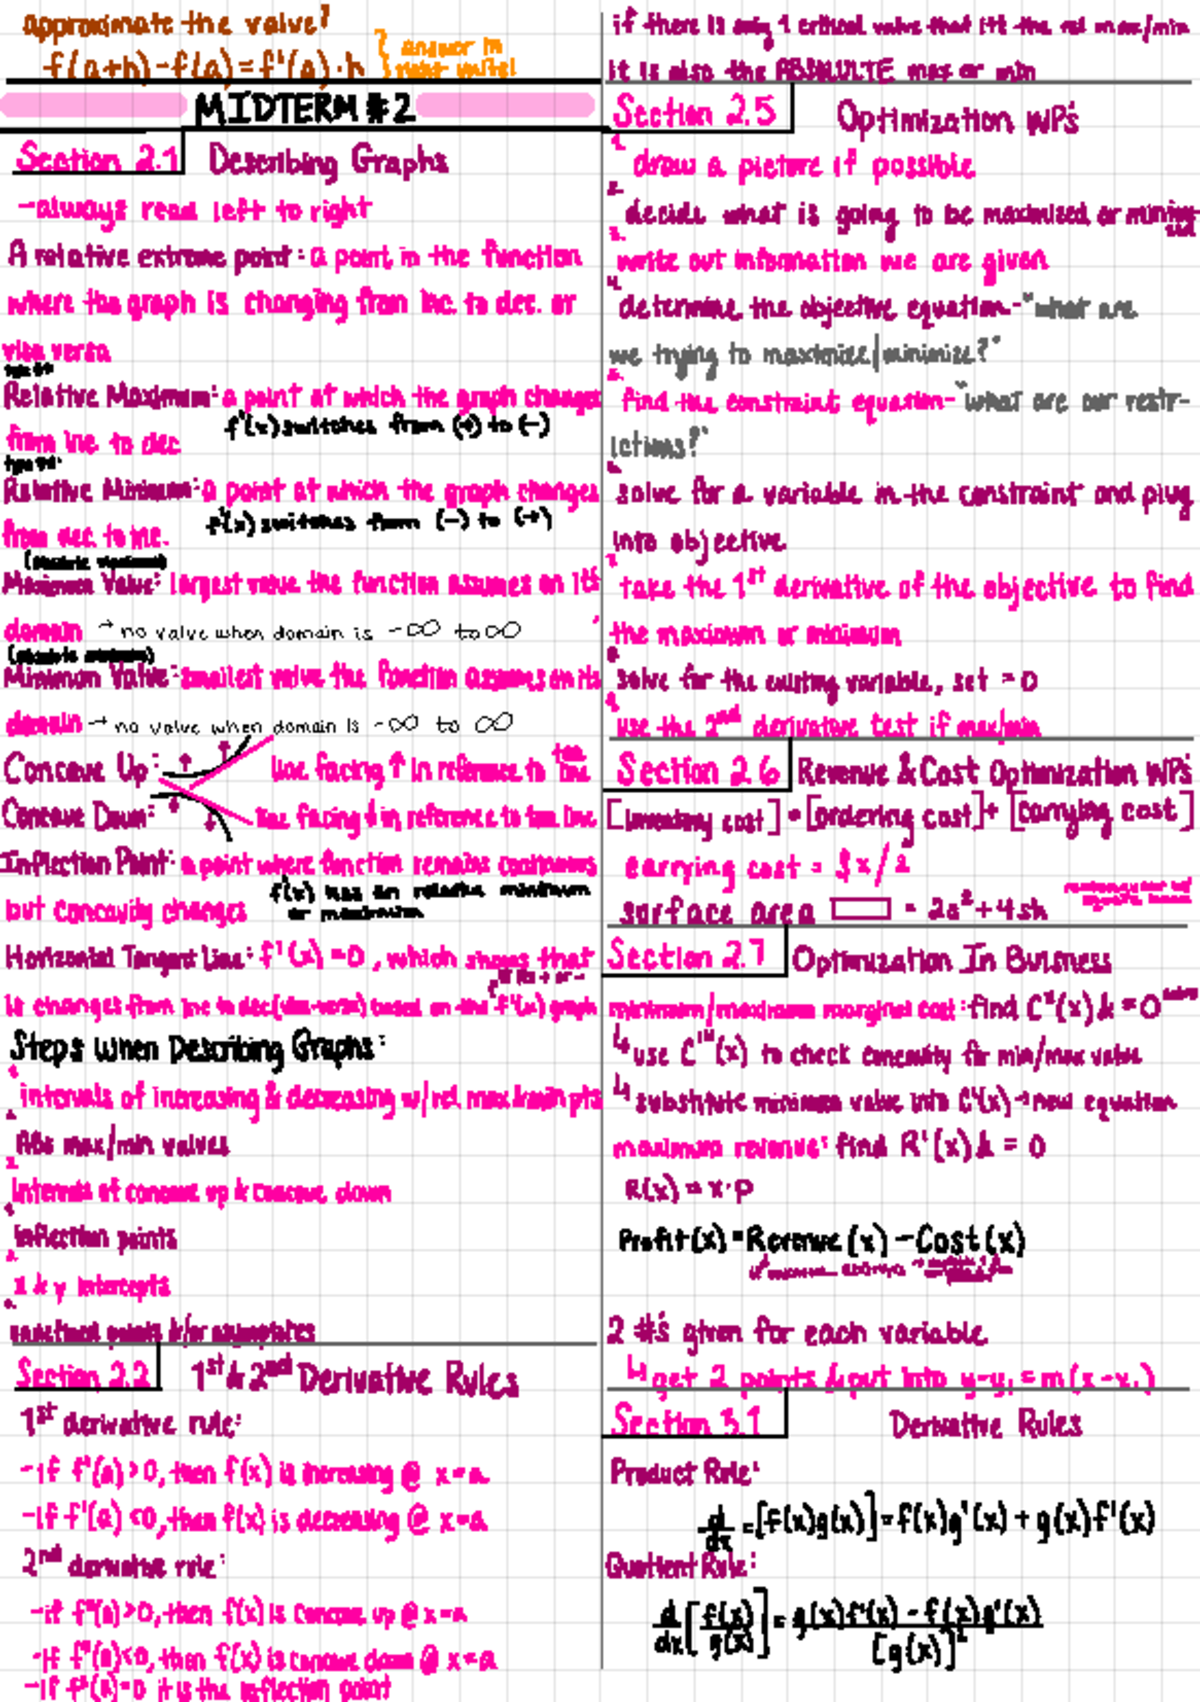 approximate the value?
f(a+h)-f(a)=f'(a)·h
answer in
right units!
MIDTERM #2
Section 2.1 Describing Graphs
-always read left to right
A relative extreme point: a point in the function
where the graph is changing from inc. to dec. or
vice versa
Relative Maximum: a point at which the graph changes
f'(x) switches from (+) to (-)
from inc. to dec
Relative Minimum: a point at which the graph changes
f'(x) switches from (-) to (+)
from dec. to inc.
(absolute maximum)
Maximum Value: largest value the function assumes on its
domain → no value when domain is -∞ to ∞
(absolute minimum)
Minimum Value: smallest value the function assumes on its
domain → no value when domain is -∞ to ∞
Concave Up: line facing ↑ in reference to tan line
Concave Down: line facing ↓ in reference to tan line
Inflection Point: a point where function remains continuous
f'(x) has an relative minimum
or maximum
but concavity changes
Horizontal Tangent Line: f'(x)=0, which shows that
is changes from inc to dec based on the f'(x) graph
Steps When Describing Graphs:
intervals of increasing & decreasing w/rel max &min pts
Abs max/min values
intervals of concave up & concave down
inflection points
x & y intercepts
undefined points &/or asymptotes
Section 2.2 1st & 2nd Derivative Rules
1st derivative rule:
-if f'(a) >0, then f(x) is increasing @ x=a
-if f'(a) <0, then f(x) is decreasing @ x=a
2nd derivative rule:
-if f"(a)>0, then f(x) is concave up @ x=a
-if f"(a)<0, then f(x) is concave down @ x=a
-if f"(a)=0 it is the inflection point
if there is only 1 critical value that its the rel max/min
it is also the ABSOLULTE max or min
Section 2.5 Optimization WP's
1. draw a picture if possible
2. decide what is going to be maximised or minimised
3. write out information we are given
4. determine the objective equation-"what are
we trying to maximize/minimize?"
5. find the constraint equation-"what are our restr-
ictions?"
6. solve for a variable in the constraint and plug
into objective
7. take the 1st derivative of the objective to find
the maximum or minimum
8. solve for the existing variable, set =0
9. use the 2nd derivative test if max/min
Section 2.6 Revenue & Cost Optimization WP's
[inventory cost]=[ordering cost]+[carrying cost]
carrying cost = $x/2
surface area = 2s²+4sh
Section 2.7 Optimization In Buisness
minimum/maximum marginal cost: find C"(x) & =0
↳ use C'''(x) to check concavity for min/max value
↳ substitute minimum value into C'(x) → new equation
maximum revenue: find R'(x) & = 0
R(x) = x·p
Profit(x)=Revenue(x)-Cost(x)
2 #'s given for each variable
↳ get 2 points & put into y-y₁=m(x-x₁)
Section 3.1 Derivative Rules
Product Rule:
d/dx=[f(x)g(x)]=f(x)g'(x)+g(x)f'(x)
Quotient Rule:
d/dx[f(x)/g(x)]=g(x)f'(x)-f(x)g'(x)/[g(x)]²